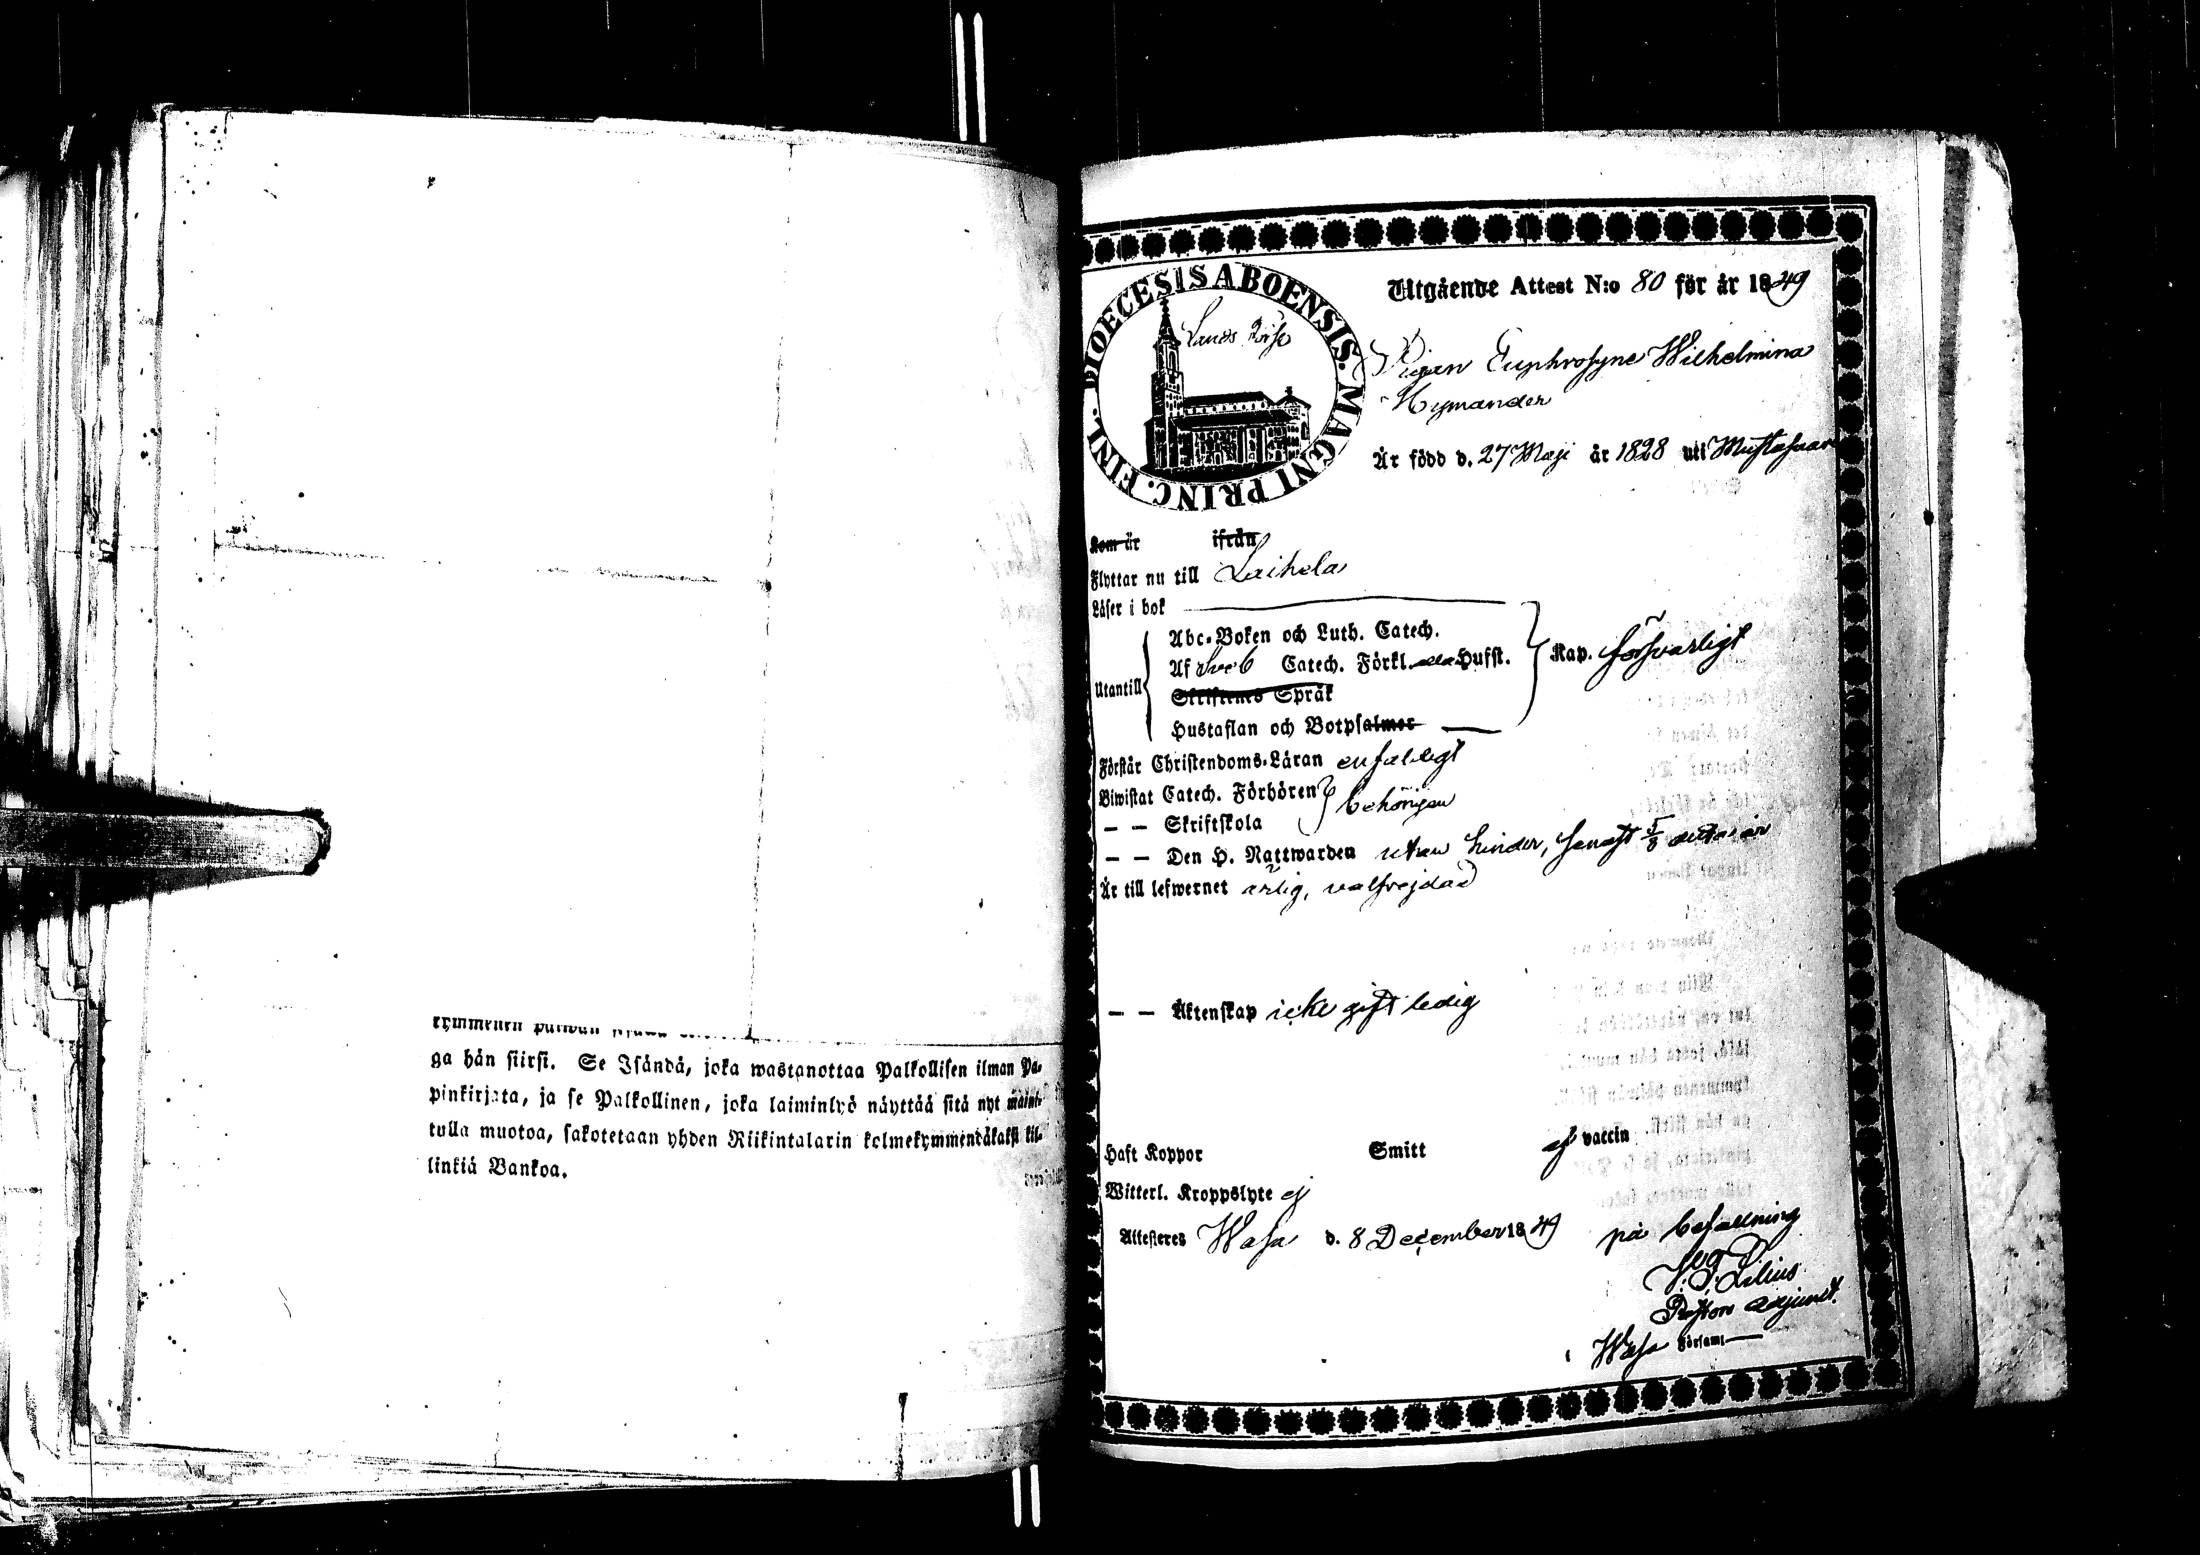 ga hän siirsi. Se Isändä, joka wastanottaa Palkollisen ilman Pa-
pinkirjata, ja se Palkollinen, joka laiminlyö näyttää sitä nyt mainit-
tulla muotoa, sakotetaan yhden Riikintalarin kolmekymmentäkaksi kil-
linkiä Bankoa.
DIOECESIS ABOENSIS. MAGNI PRINC. FINL.
Utgående Attest N:o 80 för år 1849
Pigan Euphrosyne Wilhelmina
Nymander
Är född d. 27 Maji år 1828 uti Mustasaari
Kom år ifrån
Flyttar nu till Laihela
Läser i bok
Utantill
Abc-Boken och Luth. Catech.
Af Sveb Catech. Förkl. Husst.
Skriftenes Språk
Hustaflan och Botpsalmer
Kap. försvarligt
Förstår Christendoms-Läran enfaldigt
Biwistat Catech. Förhören behörigen
— — Skriftskola
— — Den H. Nattwarden utan hinder, senast 5/8 detta år
Är till lefwernet ärlig, välfrejdad
— — Äktenskap icke gift ledig
Haft Koppor Smitt af vaccin
Witterl. Kroppslyte ej
Attesteras Wasa d. 8 December 1849
på befallning
Lilius
Pastors adjunct.
i Wasa Församl